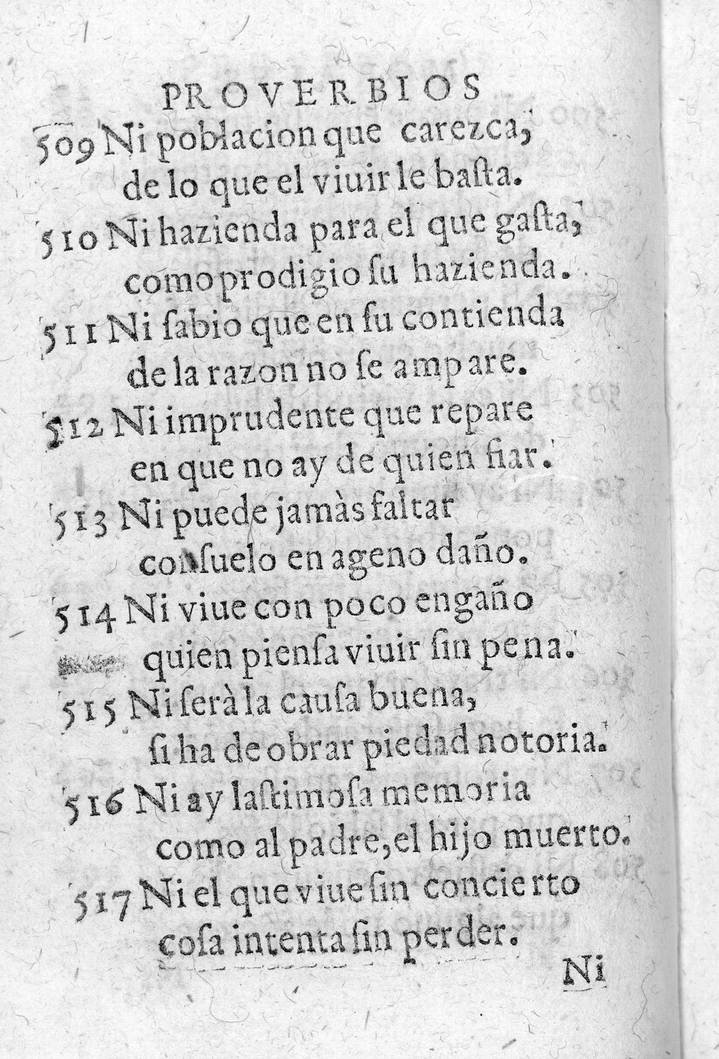 PROVERBIOS
509 Ni poblacion que carezca,
de lo que el viuir le baſta.
510 Ni hazienda para el que gaſta,
como prodigio ſu hazienda.
511 Ni ſabio que en ſu contienda
de la razon no ſe ampare.
512 Ni imprudente que repare
en que no ay de quien fiar.
513 Ni puede jamàs faltar
conſuelo en ageno daño.
514 Ni viue con poco engaño
quien pienſa viuir ſin pena.
515 Ni ſerà la cauſa buena,
ſi ha de obrar piedad notoria.
516 Ni ay laſtimoſa memoria
como al padre, el hijo muerto.
517 Ni el que viue ſin concierto
coſa intenta ſin perder.
Ni